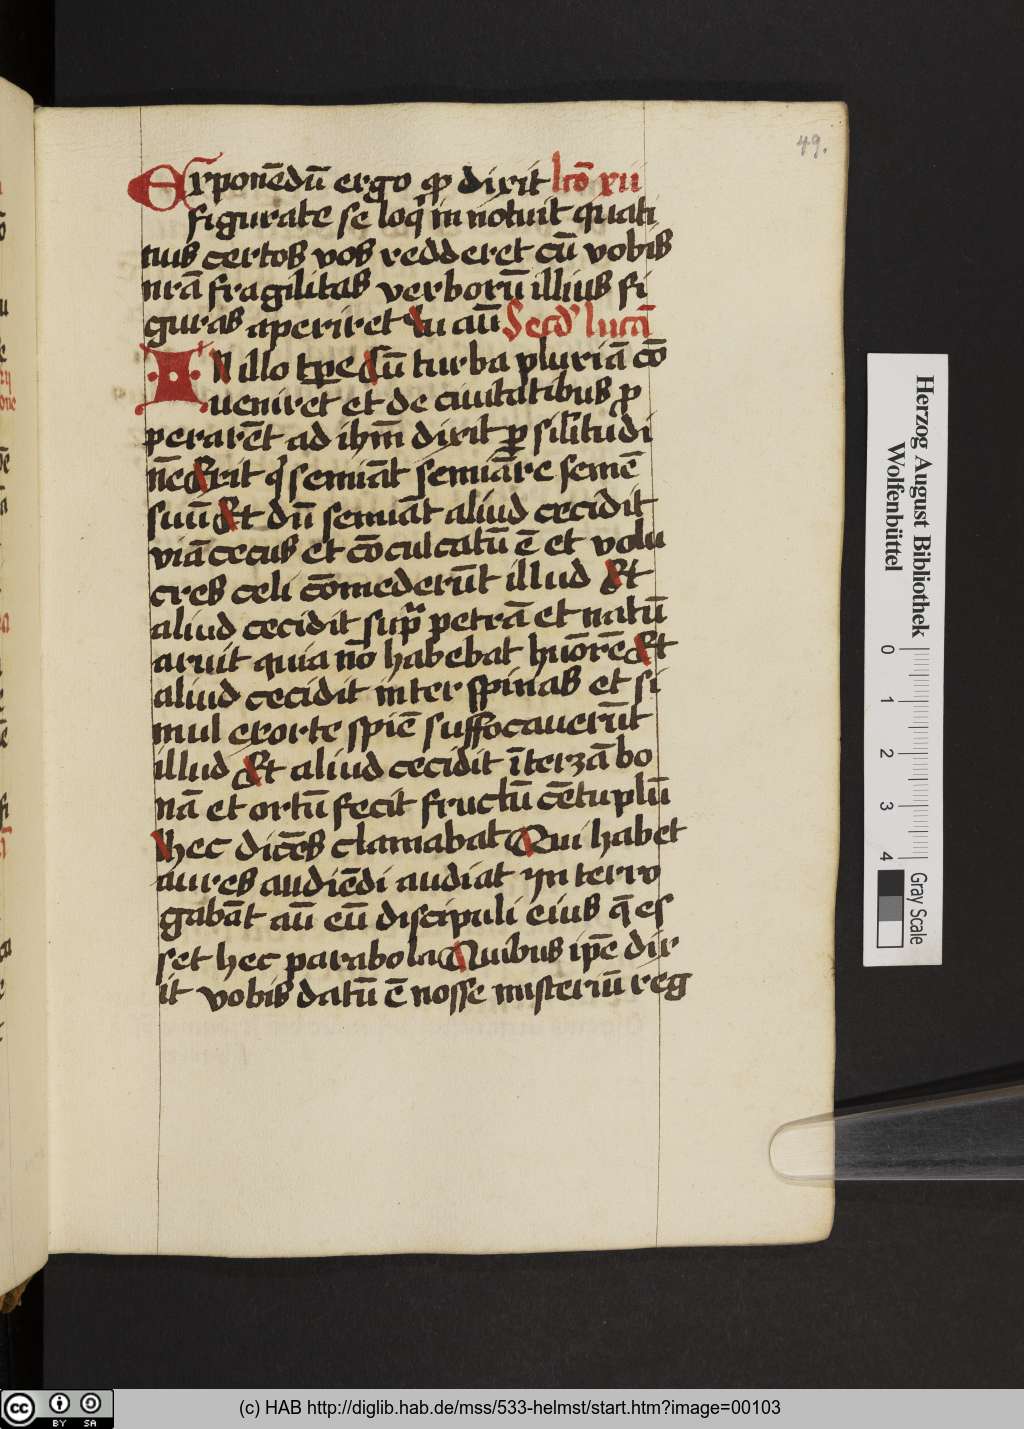 49.
Exponēdū ergo qp dixit lcō xii
figurate se loq̄ innotuit quati
nus certos vos redderet cū vobis
nrā fragilitas verborū illius fi
guras aperiret Tu aū Secd' lucā
IN illo tpe Cū turba pluriā cō
ueniret et de ciuitatibus p
perarēt ad ihm̄ dixit p silitudi
nē Exit q semīat semīare semē
suū Et dū semīat aliud cecidit
viā secus et cōculcatū ē et volu
cres celi cōmederūt illud Et
aliud cecidit sup petrā et natū
aruit quia nō habebat huōrē Et
aliud cecidit inter spinas et si
mul exorte spīe suffocauerūt
illud Et aliud cecidit ī terrā bo
nā et ortū fecit fructū cētuplū
hec dicēs clamabat Qui habet
aures audiēdi audiat Interro
gabāt aū eū discipuli eius q̄ es
set hec parabola Quibus ipē dix
it vobis datū ē nosse misteriū reg
Herzog August Bibliothek
Wolfenbüttel
0 1 2 3 4
Gray Scale
cc BY SA
(c) HAB http://diglib.hab.de/mss/533-helmst/start.htm?image=00103